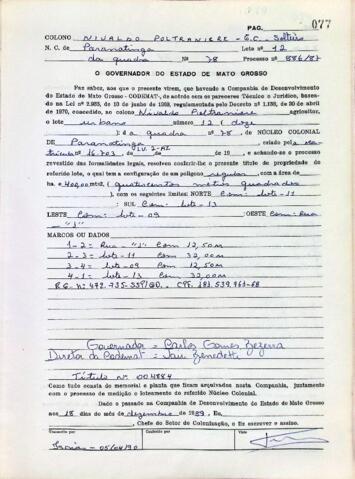 PAG. 077
COLONO NIVALDO POLTRANIERE - E.C. Solteiro
N. C. de Paranatinga Lote nº 12
da quadra Nº 78 Processo nº 886/87
O GOVERNADOR DO ESTADO DE MATO GROSSO
Faz saber, aos que o presente virem, que havendo a Companhia de Desenvolvimento
do Estado de Mato Grosso - CODEMAT-, de acordo com os pareceres Técnico e Jurídico, basea-
do na Lei nº 2.985, de 10 de junho de 1969, regulamentada pelo Decreto nº 1.138, de 30 de abril
de 1970, concedido ao colono Nivaldo Poltraniere agricultor,
o lote urbano número 12 (doze
) da quadra nº 78, do NÚCLEO COLONIAL
DE Paranatinga LIV. 2-AZ criado pela ma-
trícula nº 16.703 de de 19 , e achando-se o processo
revestido das formalidades legais, resolveu conferir-lhe o presente título de propriedade do
referido lote, o qual tem a configuração de um polígono regular, com a área de
ha 400,00 mts2, (quatrocentos metros quadrados
), com os seguintes limites: NORTE Com: lote-11
: SUL Com: lote-13
LESTE Com: lote-09 :OESTE Com: Rua
- "J"
MARCOS OU DADOS
1-2= Rua - "J" Com 12,50m
2-3= lote-11 Com 32,00m
3-4= lote-09 Com 12,50m
4-1= lote-13 Com 32,00m
Governador = Carlos Gomes Bezerra
Diretor da Codemat = Jair Benedetti
Título Nº 004884
Como tudo consta do memorial e planta que ficam arquivados nesta Companhia, juntamente
com o processo de medição e loteamento do referido Núcleo Colonial.
Dado e passado na Companhia de Desenvolvimento do Estado de Mato Grosso
aos 18 dias do mês de dezembro de 1989. Eu,
Chefe do Setor de Colonização, o fiz escrever e assino.
Transcrito por Conferido por Visto
05/04/90